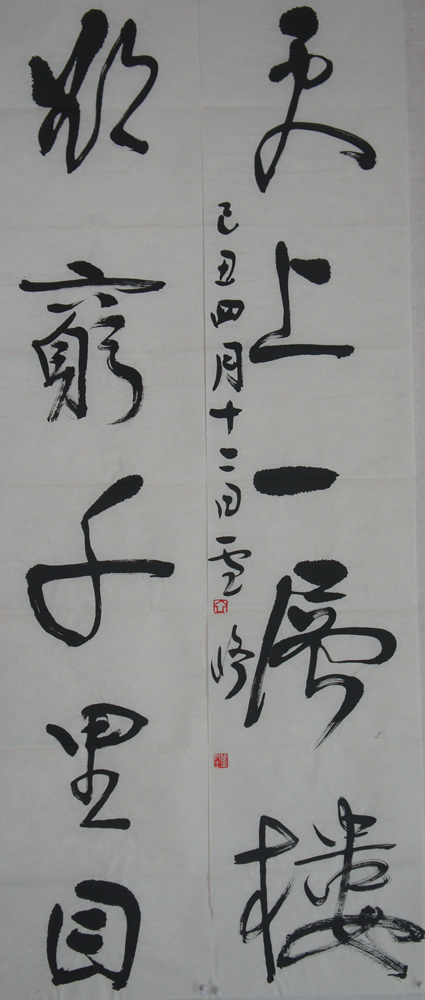 欲窮千里目
更上一層楼
己丑四月十二日